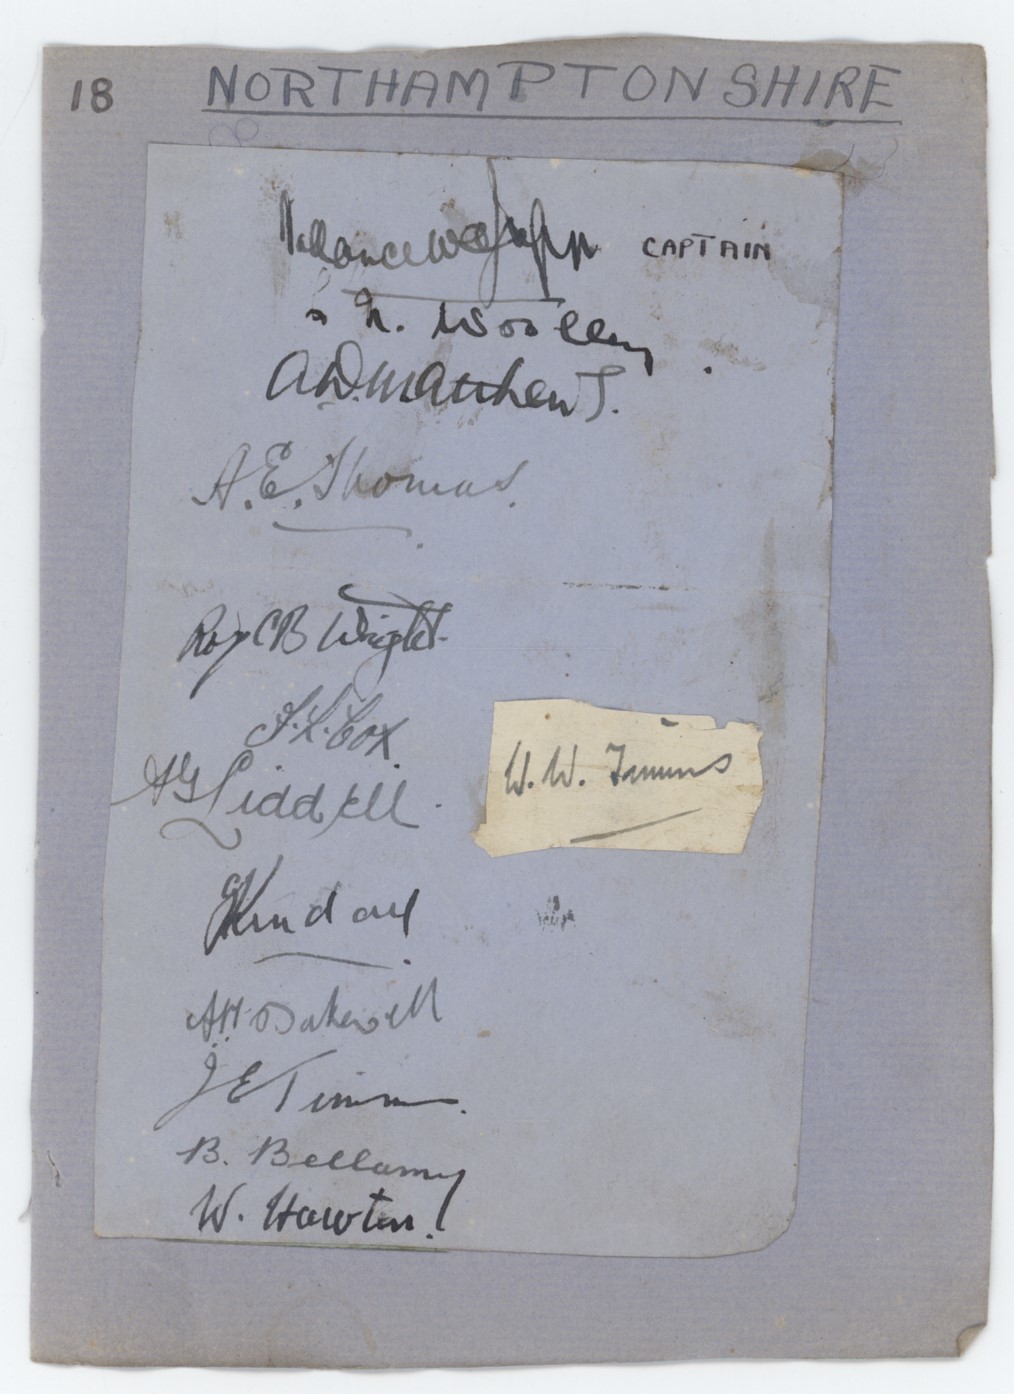 18 NORTHAMPTONSHIRE
Vallance W C Jupp CAPTAIN
C. N. Woolley
A D. Matthews.
A. E. Thomas.
Roy C B Wright
F. L. Cox.
A G Liddell.
W. W. Timms
A H Bakewell
J E Timms.
B. Bellamy
W. Hawtin.